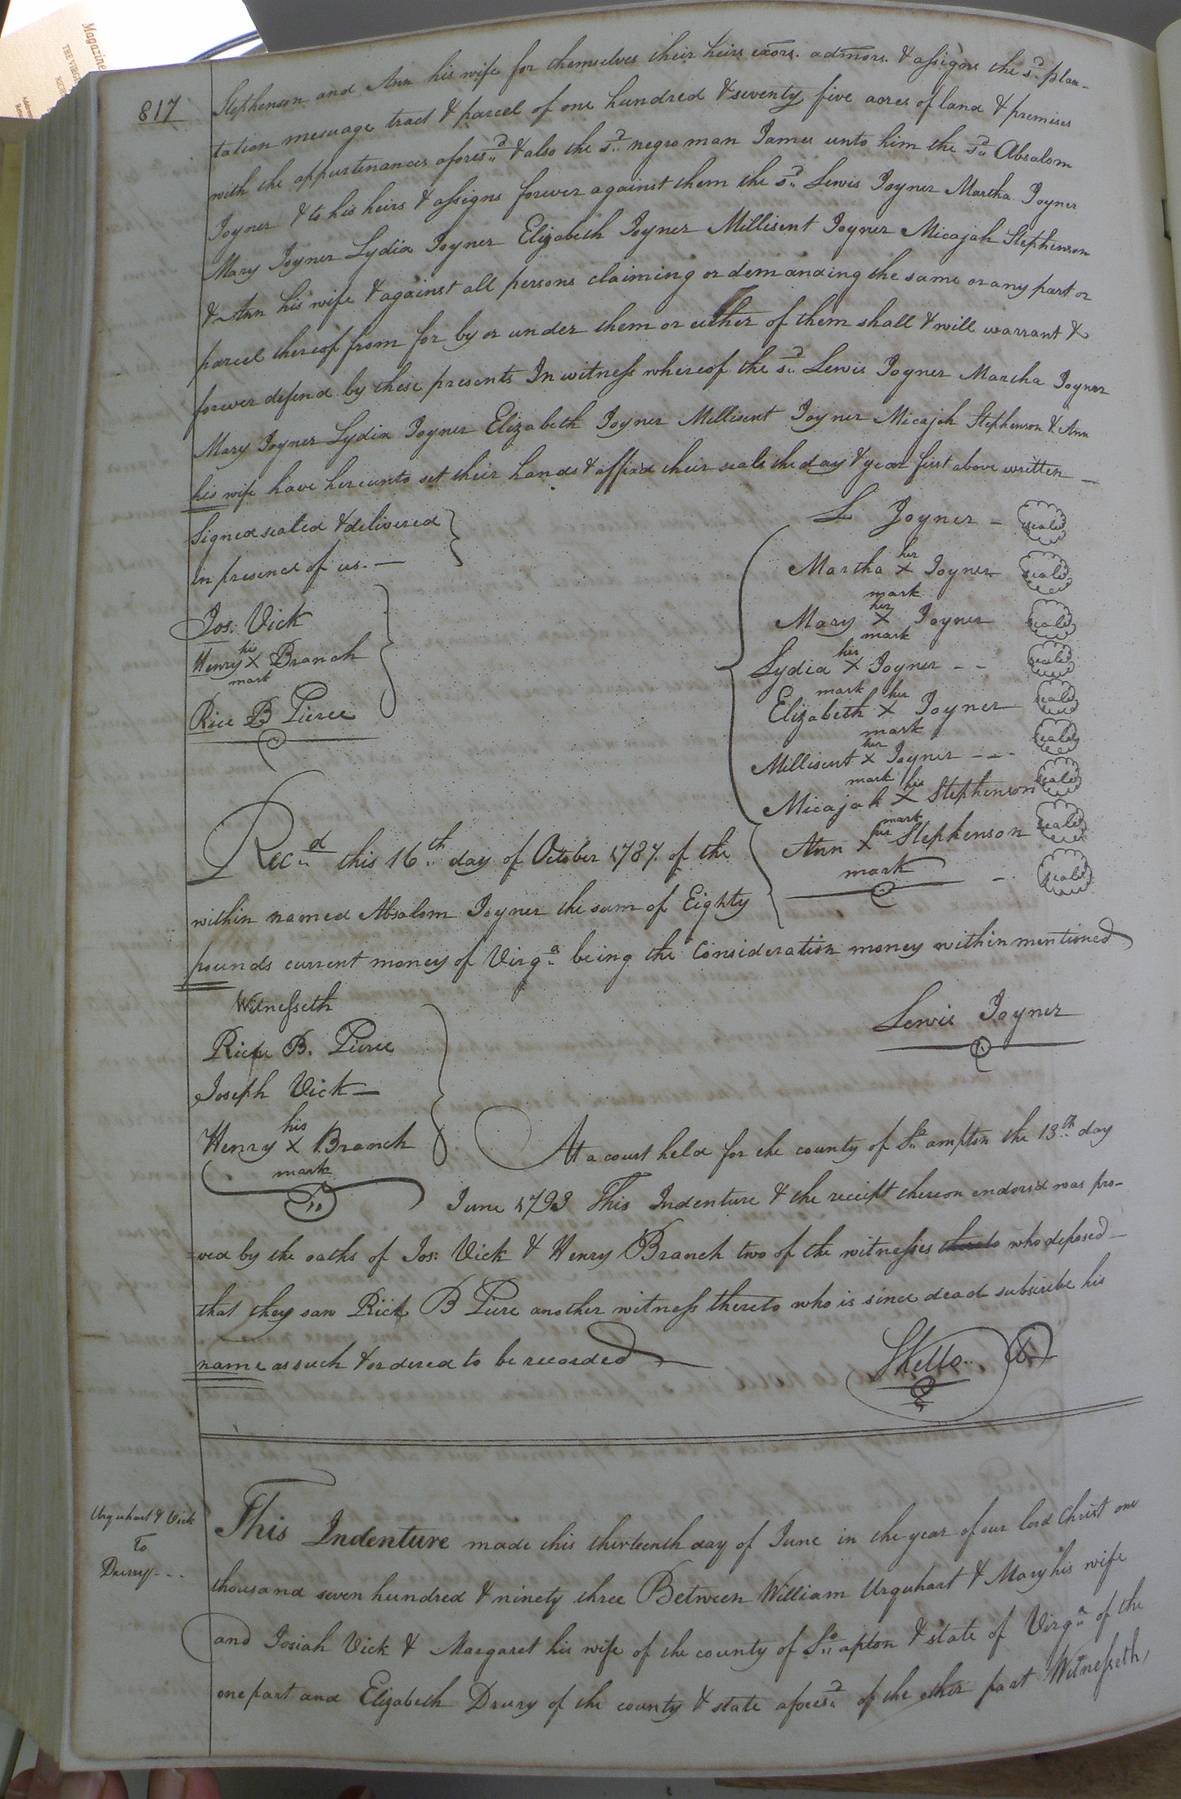 817
Stephenson and Ann his wife for themselves their heirs exors. admors. & assigns the sd. plan-
tation mesuage tract & parcel of one hundred & seventy five acres of land & premises
with the appurtenances aforesd. & also the sd. negro man James unto him the sd. Absalom
Joyner & to his heirs & assigns forever against them the sd. Lewis Joyner Martha Joyner
Mary Joyner Lydia Joyner Elizabeth Joyner Millisent Joyner Micajah Stephenson
& Ann his wife & against all persons claiming or demanding the same or any part or
parcel thereof from for by or under them or either of them shall & will warrant &
forever defend by these presents In witness whereof the sd. Lewis Joyner Martha Joyner
Mary Joyner Lydia Joyner Elizabeth Joyner Millisent Joyner Micajah Stephenson & Ann
his wife have hereunto set their hands & affixd their seals the day & year first above written
Signed sealed & delivered
in presence of us.
Jos: Vick
Henry his X mark Branch
Rice B Pierce
L Joyner seald
Martha her X mark Joyner seald
Mary her X mark Joyner seald
Lydia her X mark Joyner seald
Elizabeth her X mark Joyner seald
Millisent her X mark Joyner seald
Micajah his X mark Stephenson seald
Ann her X mark Stephenson seald
seald
Recd. this 16th day of October 1787. of the
within named Absalom Joyner the sum of Eighty
pounds current money of Virga. being the Consideration money within mentioned
Witnesseth
Rice B. Pierce
Joseph Vick
Henry his X mark Branch
Lewis Joyner
At a court held for the county of So. ampton the 13th day
June 1793 This Indenture & the receipt thereon endorsd was pro-
ved by the oaths of Jos: Vick & Henry Branch two of the witnesses thereto who deposed
that they saw Rice B Piere another witness thereto who is since dead subscribe his
name as such & ordered to be recorded
SKello
Urquhart & Vick
To
Drury
This Indenture made this thirteenth day of June in the year of our lord Christ one
thousand seven hundred & ninety three Between William Urquhart & Mary his wife
and Josiah Vick & Margaret his wife of the county of So. apton & state of Virga. of the
one part and Elizabeth Drury of the county & state aforesd. of the other part Witnesseth,